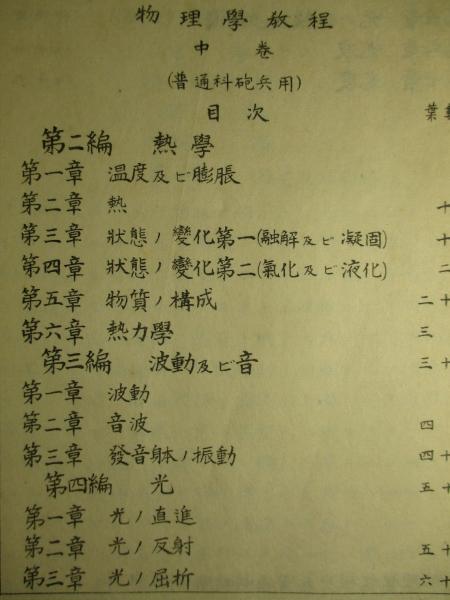 物理學教程
中卷
(普通科砲兵用)
目次
葉
第二編 熱學
第一章 溫度及ビ膨脹
第二章 熱 十
第三章 狀態ノ變化第一(融解及ビ凝固) 十
第四章 狀態ノ變化第二(氣化及ビ液化) 二
第五章 物質ノ構成 二十
第六章 熱力學 三
第三編 波動及ビ音 三十
第一章 波動
第二章 音波 四
第三章 發音躰ノ振動 四十
第四編 光 五十
第一章 光ノ直進
第二章 光ノ反射 五十
第三章 光ノ屈折 六十